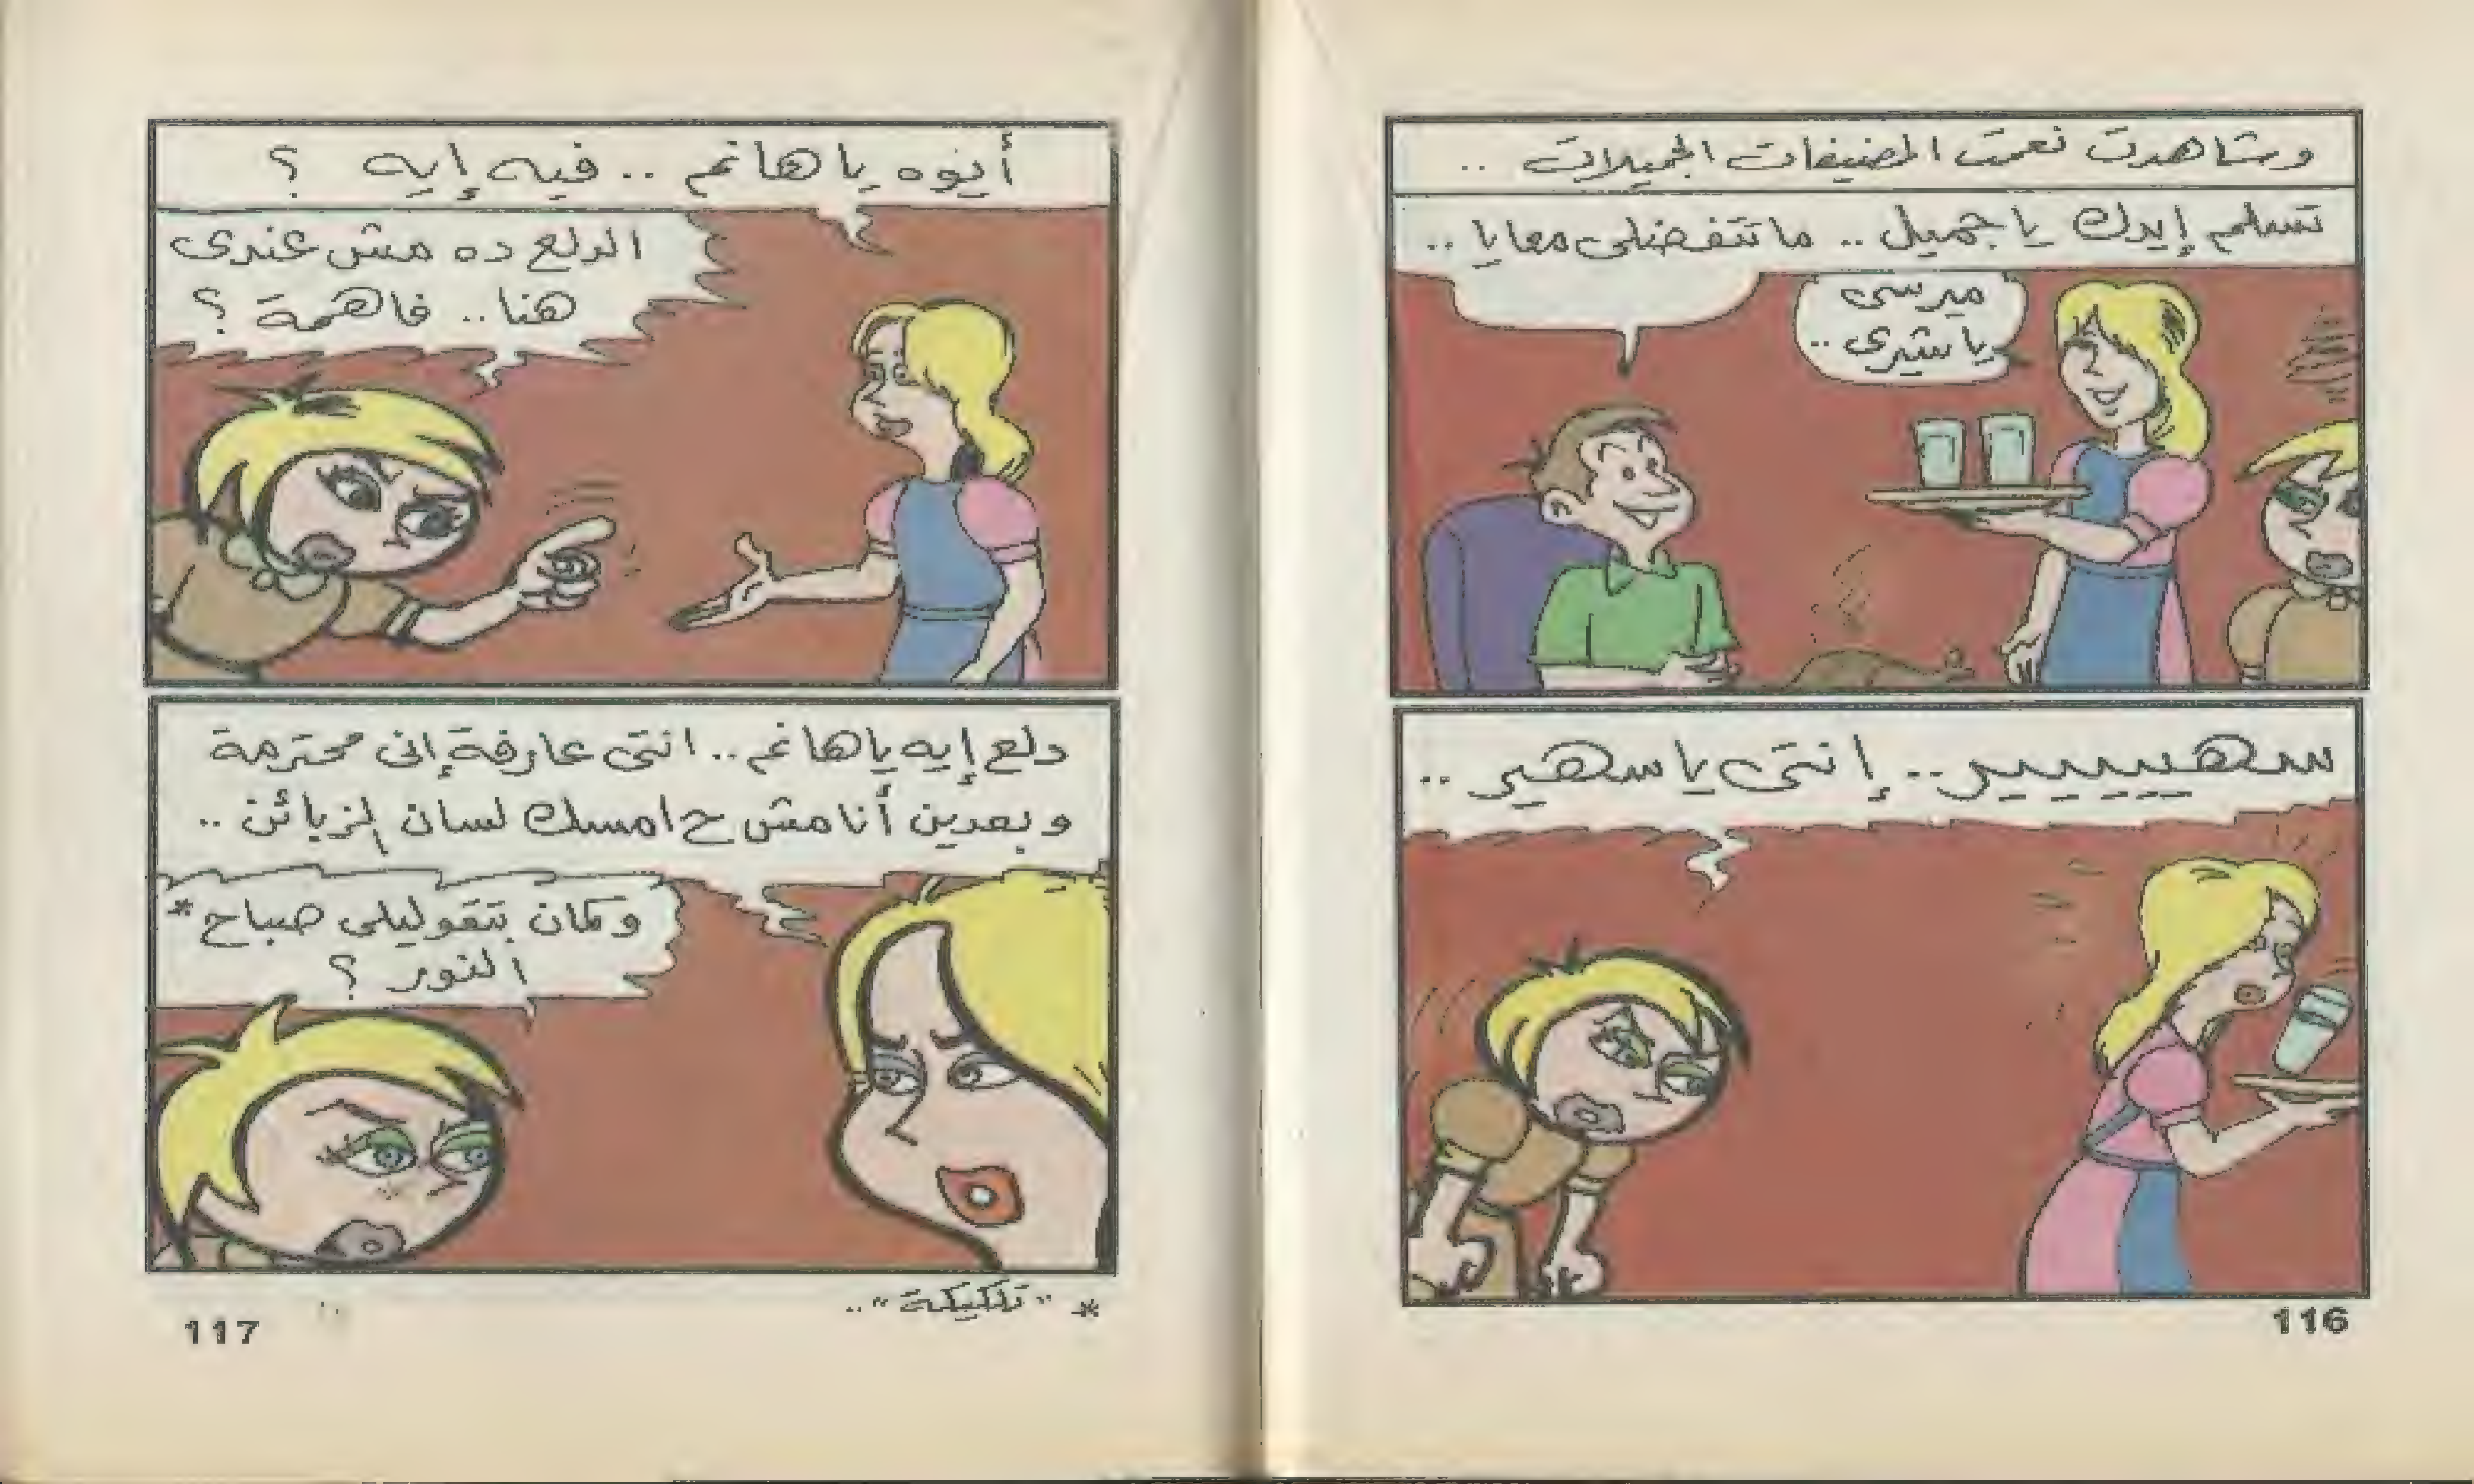 وشاهدت نعمت المضيفات الجميلات ..
تسلم إيدك يا جميل .. ما تتفضلى معايا ..
ميرسى
يا شيرى ..
سهيييير .. إنتى يا سهير ..
116
أيوه يا هانم .. فيه إيه ؟
الدلع ده مش عندى
هنا .. فاهمة ؟
دلع إيه يا هانم .. انتى عارفة إنى محترمة
وبعدين أنا مش ح امسك لسان الزبائن ..
وكمان بتقوليلى صباح *
النور ؟
* "تلكيكة" ..
117